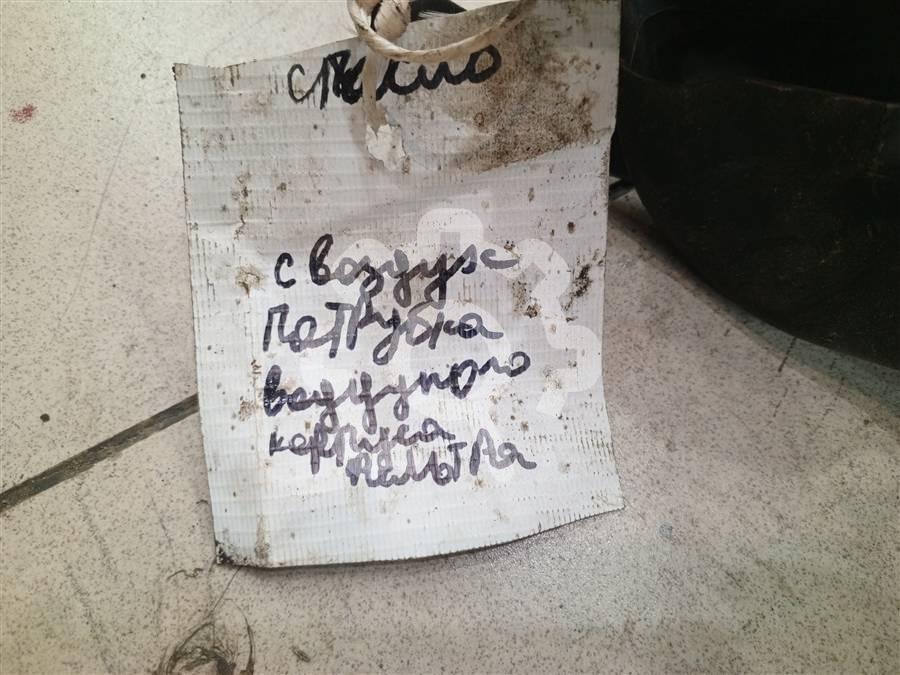 стекло
с воздух
патрубка
воздушного
корпуса
фильтра